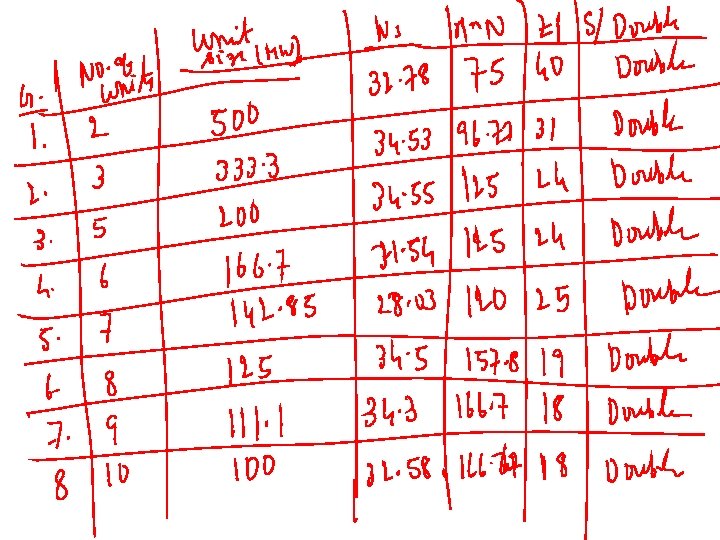 Sr. No. of Units Unit Size (MW) Ns N Double
1. 2 500 32.78 75 40 Double
2. 3 333.3 34.53 31 Double
3. 5 200 34.55 125 24 Double
4. 6 166.7 31.54 125 24 Double
5. 7 142.85 28.03 120 25 Double
6 8 125 34.5 157.8 19 Double
7. 9 111.1 34.3 166.7 18 Double
8 10 100 32.58 18 Double